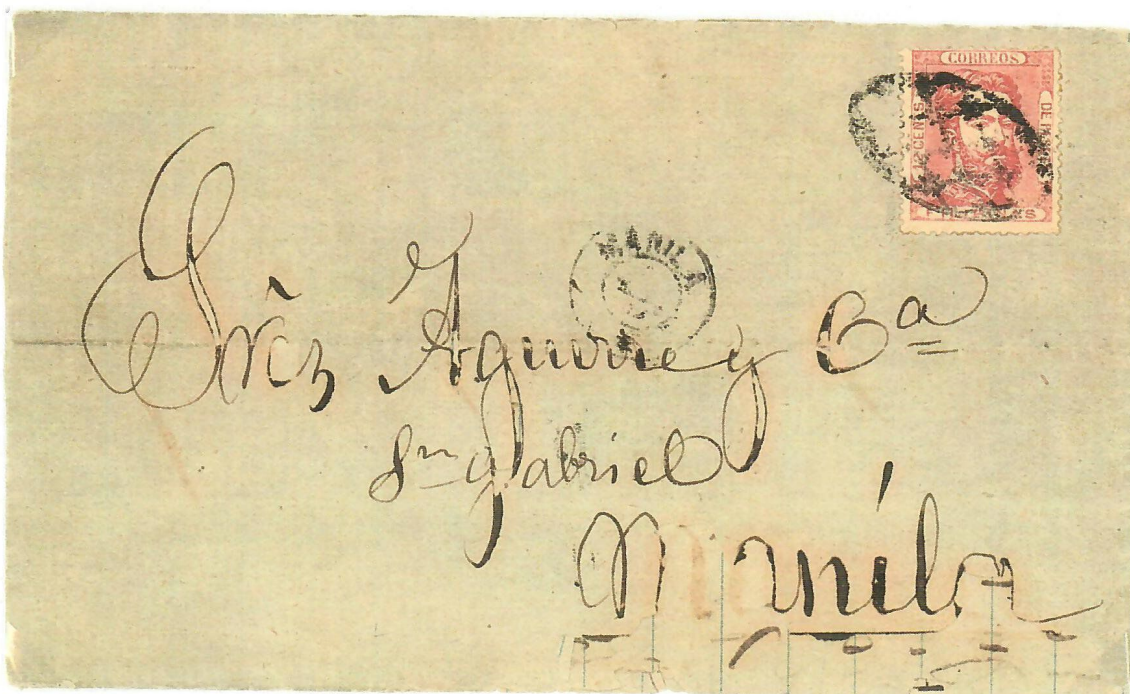 CORREOS
12 CENTS
MANILA
Sres Aguirre y Ca
Sn Gabriel
Manila